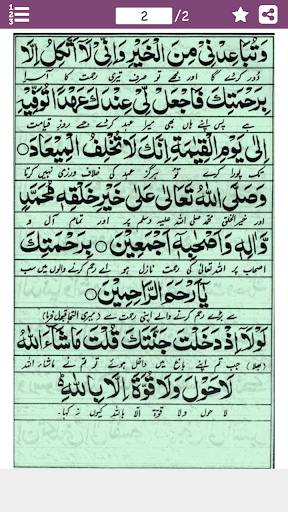 2 /2
وَتُبَاعِدُنِیْ مِنَ الْخَیْرِ وَاِنِّیْ لَآ اَتَّکِلُ اِلَّا
دُور کرے گا اور مجھے تو صرف تیری رحمت کا آسرا
بِرَحْمَتِکَ فَاجْعَلْ لِّیْ عِنْدَکَ عَهْدًا تُوَفِّیْهِ
ہے پس اپنے ہاں بھی میرا عہد کرے جسے روزِ قیامت
اِلٰی یَوْمِ الْقِیٰمَةِ اِنَّکَ لَا تُخْلِفُ الْمِیْعَادَ
تک پورا کرے تو ہرگز عہد کی خلاف ورزی نہیں کرتا
وَصَلَّی اللّٰهُ تَعَالٰی عَلٰی خَیْرِ خَلْقِهٖ مُحَمَّدٍ
اور خیرالخلق محمد صلی اللہ علیہ وسلم پر اور تمام آل و
وَّاٰلِهٖ وَاَصْحَابِهٖٓ اَجْمَعِیْنَ بِرَحْمَتِکَ
اصحاب پر اللہ تعالٰی کی رحمت نازل ہو اے رحم کرنے والوں میں سب
یَآ اَرْحَمَ الرَّاحِمِیْنَ
سے بڑے رحم کرنے والے اپنی رحمت سے (میری التجا قبول فرما)
لَوْلَآ اِذْ دَخَلْتَ جَنَّتَکَ قُلْتَ مَا شَآءَ اللّٰهُ
(بھلا) جب تم اپنے باغ میں داخل ہوئے تو تم نے ماشاء اللہ
لَا حَوْلَ وَلَا قُوَّةَ اِلَّا بِاللّٰهِ
لا حول ولا قوۃ الا باللہ کیوں نہ کہا۔